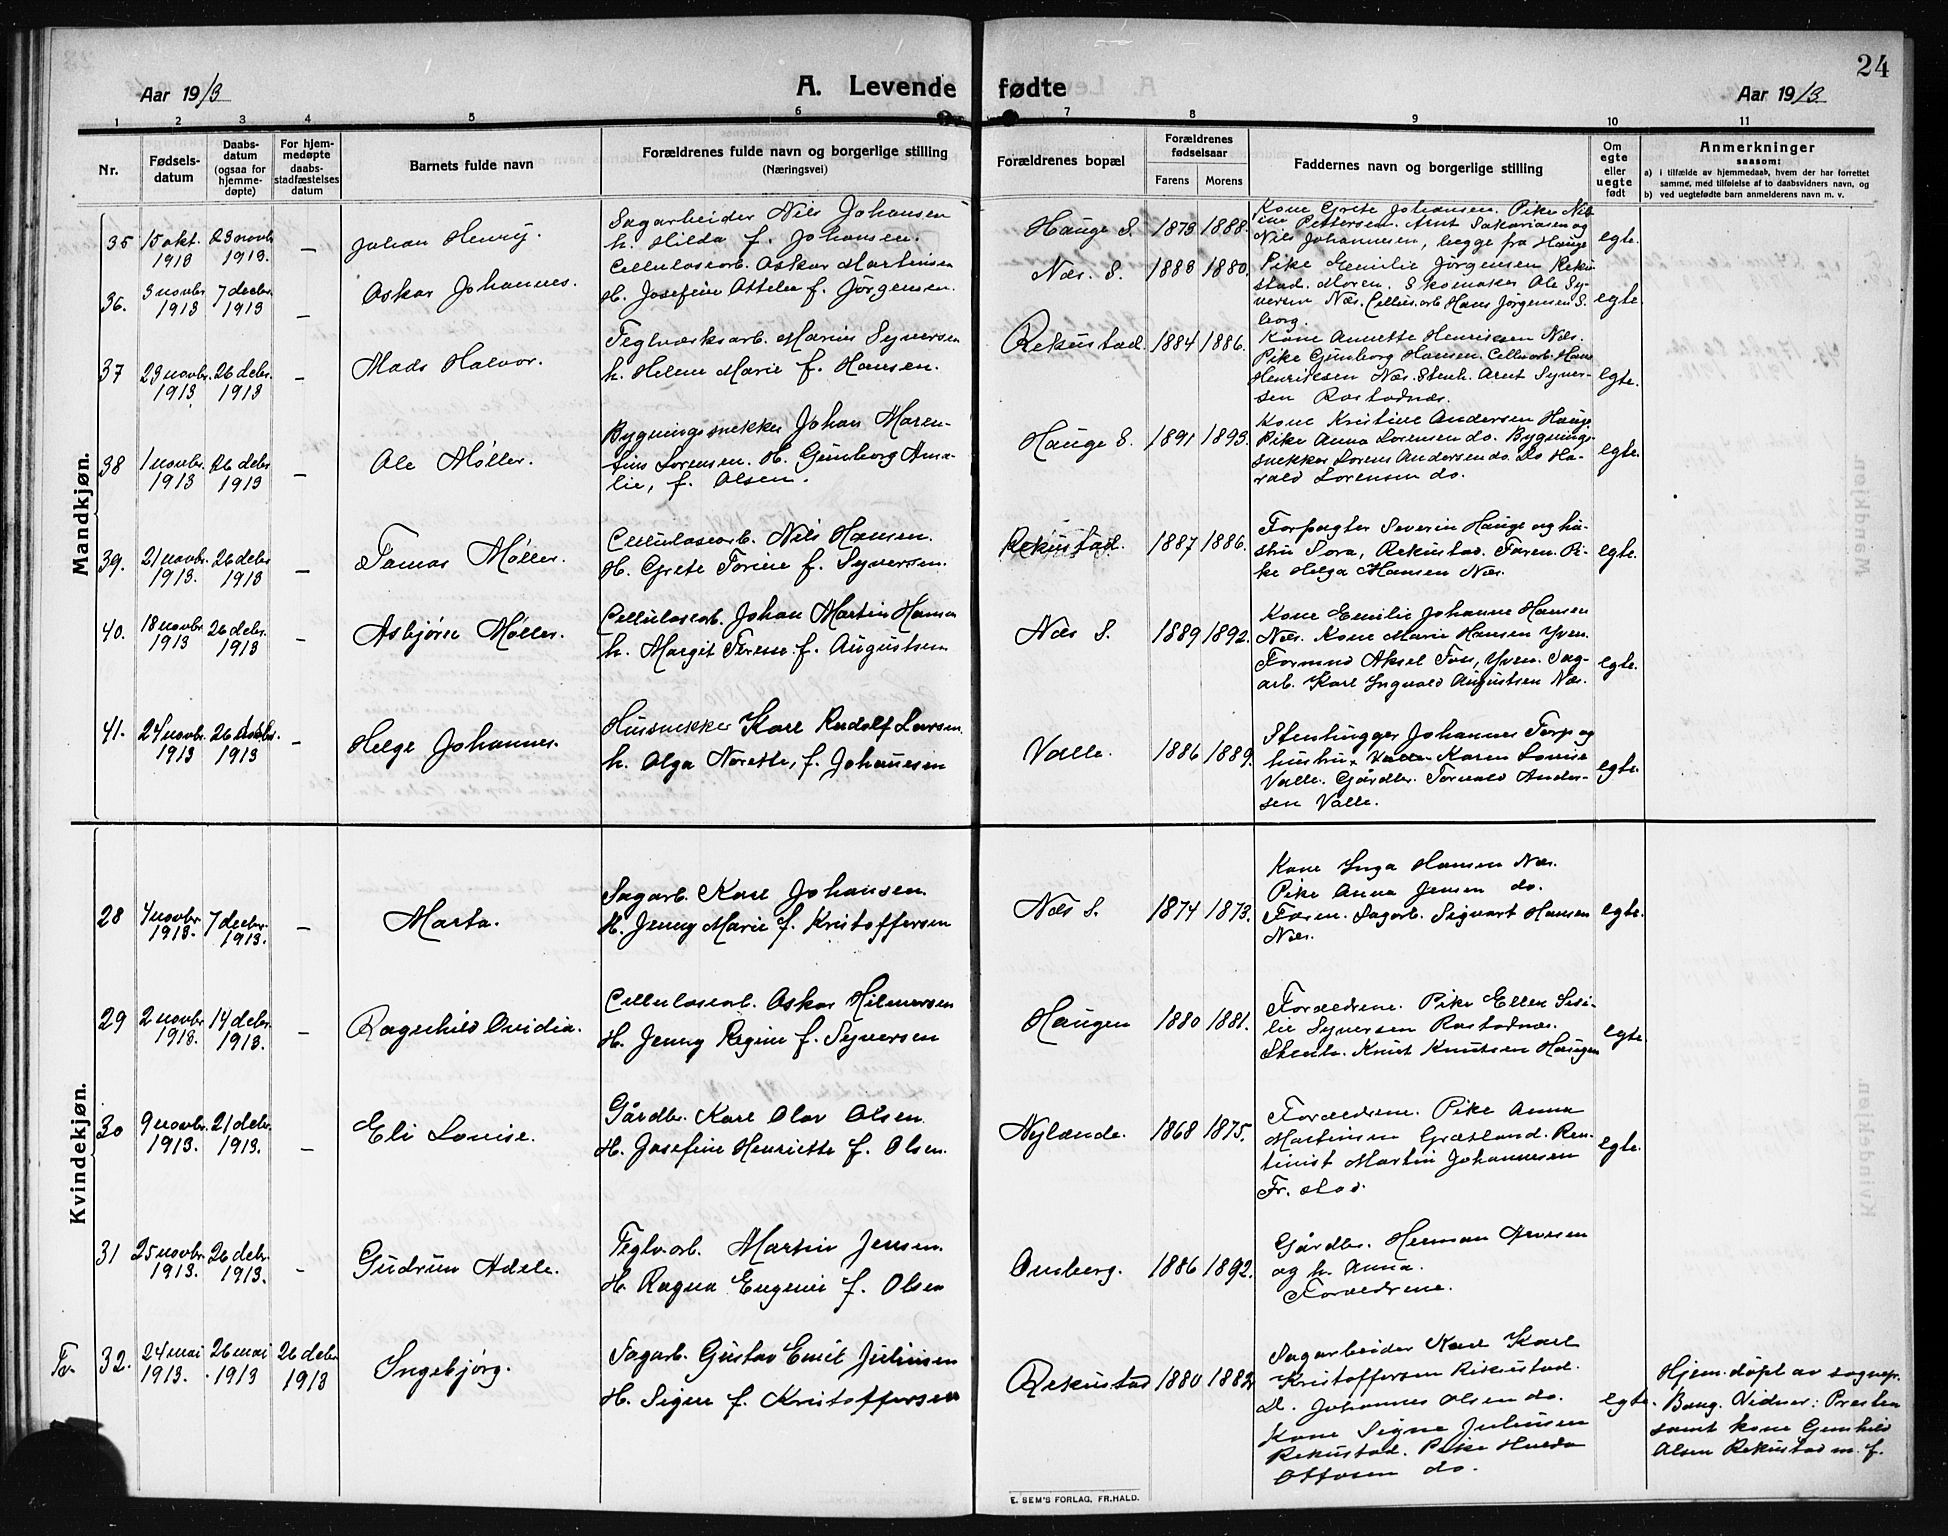 24
Aar 1913
A. Levende fødte
Aar 1913
1 2 3 4 5 6 7 8 9 10 11
Nr.
Fødsels-
datum
Daabs-
datum
(ogsaa for
hjemme-
døpte)
For hjem-
medøpte
daabs-
stadfæstelses
datum
Barnets fulde navn
Forældrenes fulde navn og borgerlige stilling
(Næringsvei)
Forældrenes bopæl
Forældrenes
fødselsaar
Farens Morens
Faddernes navn og borgerlig stilling
Om
egte
eller
uegte
født
Anmerkninger
saasom:
a) i tilfælde av hjemmedaab, hvem der har forrettet
samme, med tilføielse af to daabsvidners navn, og
b) ved uegtefødte barn anmelderens navn m. v.
Mandkjøn.
35 15 okt. 1913 23 novbr 1913. – Johan Henry.
Sagarbeider Nils Johansen
h. Hilda f. Johansen.
Hauge S. 1873 1888.
Kone Grete Johansen. Pike Nil-
sine Pettersen. Arnt Sakariasen og
Nils Johannesen, begge fra Hauge
egte.
36. 3 novbr 1913 7 decbr. 1913 – Oskar Johannes.
Celluloseorb. Oskar Martinsen
H. Josefine Attelea f. Jørgensen.
Næs. S. 1888 1880.
Pike Emilie Jørgensen Reku-
stad. Moren. Skomaker Ole Sy-
versen Næs. Cellul.arb Hans Jørgensen S.
borg.
egte.
37 23 novbr. 1913 26 debr. 1913 – Mads Halvor.
Teglverksarb. Marius Syversen
h. Helene Marie f. Hansen.
Rekustad. 1884 1886.
Kone Annette Henriksen Næs.
Pike Gunborg Hansen. Cellularb. Hans
Henriksen Næs. Stenh. Arnt Syver-
sen Rostadnæs.
egte.
38 1 novbr. 1913 26 debr 1913 – Ole Møller.
Bygningssnekker Johan Maren-
tius Lorensen. H. Gunborg Ama-
lie, f. Olsen.
Hauge S. 1891 1893.
Kone Kristine Andersen Hauge
Pike Anna Lorensen do. Bygnings-
snekker Lorens Andersen do. Do Ha-
rald Lorensen do.
egte.
39. 21 novbr. 1913. 26 debr 1913 – Tomas Møller.
Celluloseorb. Nils Hansen.
H. Grete Torine f. Syversen.
Rekustad. 1887 1886.
Forpagter Severin Hauge og hu-
stru Tora, Rekustad. Faren. Pi-
ke Helga Hansen Næs.
egte.
40. 18 novbr. 1913 26 debr. 1913 – Asbjørn Møller.
Cellulosearb. Johan Martin Hansen
h. Margit Terese f. Augustsen
Næs S. 1889 1892.
Kone Emilie Johanne Hansen
Næs. Kone Marie Hansen Yven.
Formand Aksel Foss, Yven. Sag-
arb. Karl Ingvald Augustsen Næs.
egte.
41. 24 novbr. 1913 26 decbr. 1913 – Helge Johannes.
Husnekker Karl Rudolf Larsen.
h. Olga Norette, f. Johansen
Valle. 1886 1889.
Stenhugger Johannes Torp og
hustru, Valle. Karen Lovise
Valle. Gårdbr. Torvald Ander-
sen Valle.
egte.
Kvindekjøn.
28 4 novbr 1913. 7 decbr. 1913. – Marta.
Sagarb. Karl Johansen.
H. Jenny Marie f. Kristoffersen
Næs S. 1874 1873.
Kone Inga Hansen Næs.
Pike Anna Jensen do.
Faren. Sagarb. Sigvart Hansen
Næs.
egte.
29 2 novbr 1913. 14 debr. 1913. – Ragnhild Ovidia.
Celluloseorb. Oskar Hilmersen
H. Jenny Regine f. Syversen
Haugen 1880 1881.
Forældrene. Pike Ellen Sesi-
lie Syversen Rostadnæs.
Stenh. Knut Knutsen Haugen
egte.
30 9 novbr. 1913. 21 debr. 1913. – Eli Lovise.
Gårdbr. Karl Olav Olsen.
H. Josefine Henriette f. Olsen.
Nylænde. 1868 1875.
Forældrene. Pike Anna
Martinsen Græsland. Ren-
tenist Martin Johannesen
Fr.stad.
egte.
31 25 novbr. 1913. 26 debr. 1913. – Gudrun Adele.
Teglv.arb. Martin Jensen.
H. Ragna Eugenie f. Olsen
Omberg. 1886 1892.
Gårdbr. Herman Arvesen
og h. Anna.
Forældrene.
32. 24 mai 1913. 26 mai 1913 26 debr 1913 Ingebjørg.
Sagarb. Gustav Emil Juliusen
H. Signe f. Kristoffersen
Rekustad 1880 1882
Sagarbeider Karl Karl
Kristoffersen Rekustad.
D. Johannes Olsen do.
Kone Signe Juliusen
Rekustad. Pike Hulda
Ottosen do.
egte.
Hjem.døpt av sognep.
Bang. Vidner: Presten
samt kone Gunhild
Olsen Rekustad m. f.
E. SEM'S FORLAG, FR.HALD.